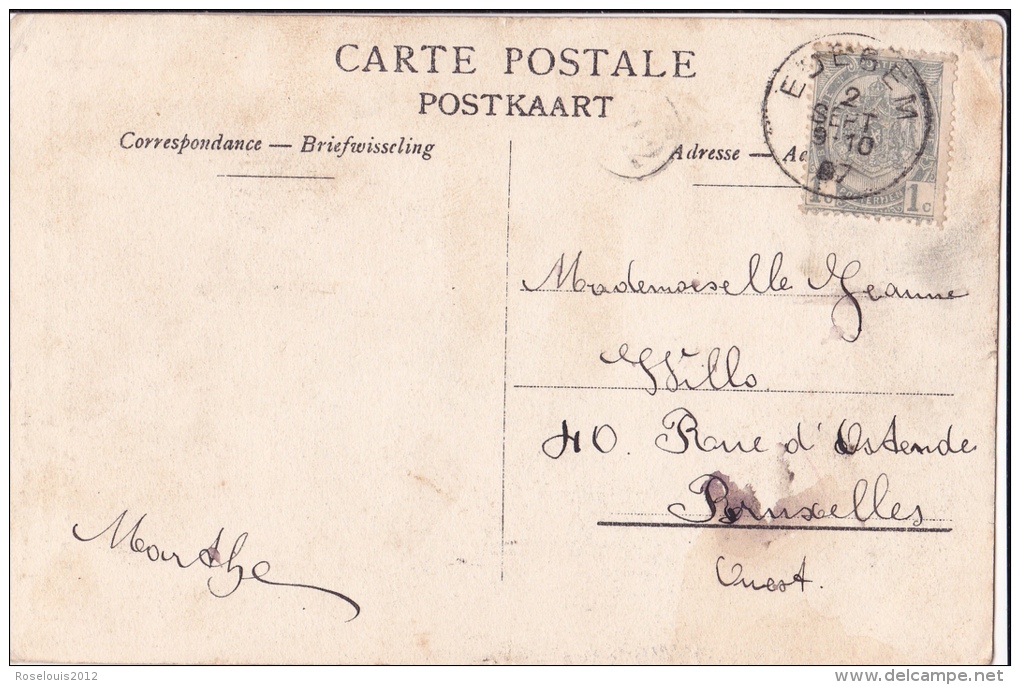 CARTE POSTALE
POSTKAART
Correspondance — Briefwisseling
Adresse —
EDEGEM
2
SEPT
10
07
1 c
Mademoiselle Jeanne
Wills
40. Rue d'Ostende
Bruxelles
Ouest.
Marthe
Roselouis2012
delcampe.net